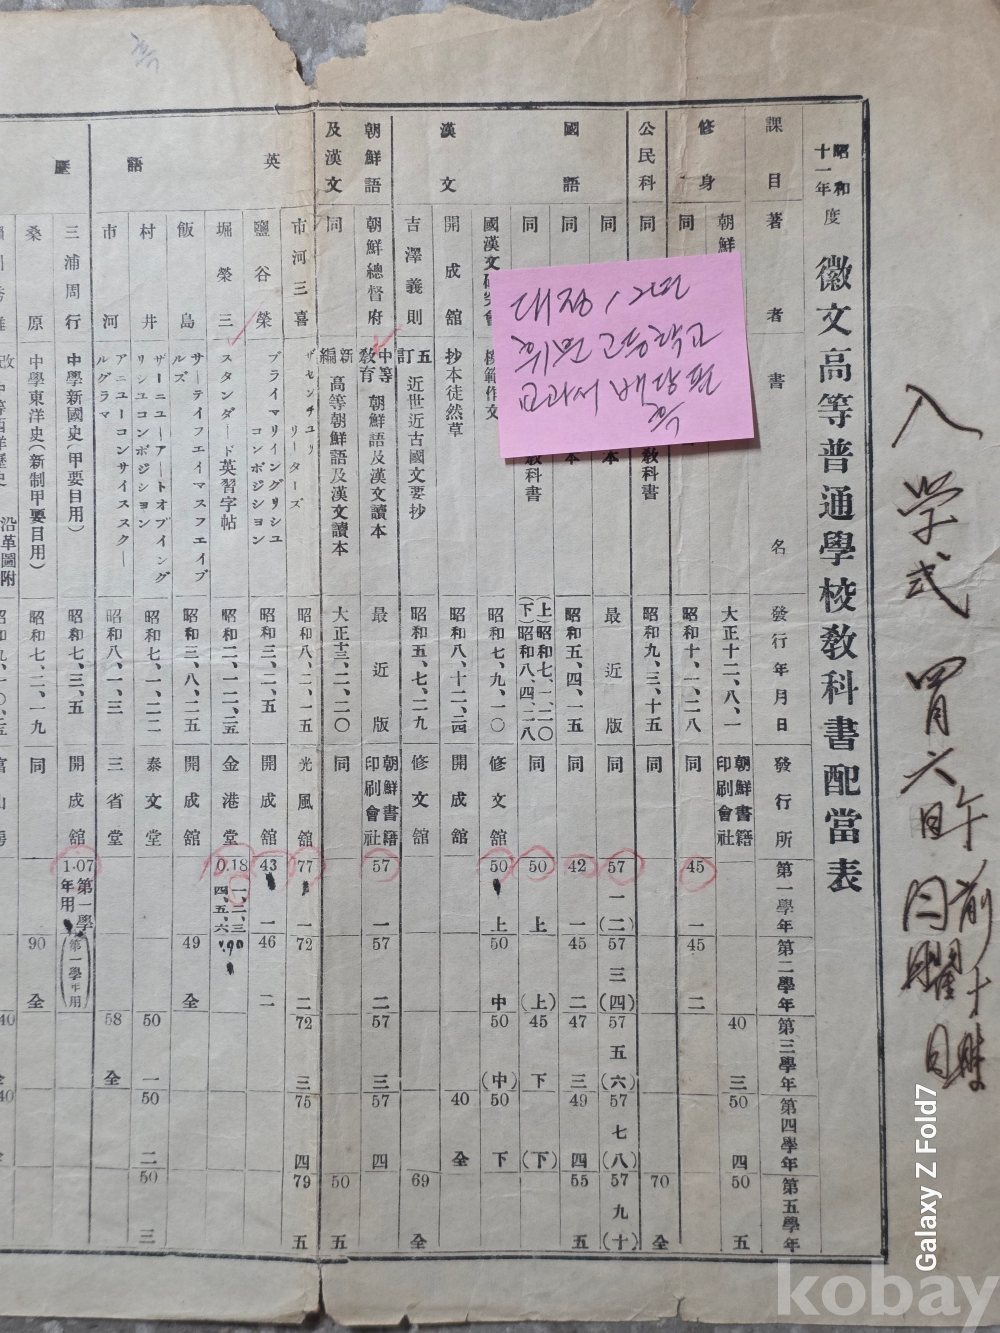 昭和十一年度
徽文高等普通學校教科書配當表
課目
著者
書名
發行年月日
發行所
第一學年
第二學年
第三學年
第四學年
第五學年
修身
朝鮮
大正十二、八、一
朝鮮書籍印刷會社
40
三
50
四
50
五
同
昭和十、一、二八
同
45
一
45
二
公民科
同
教科書
昭和九、三、十五
同
70
全
國語
漢文
同
本
最近版
同
57
一(二)
57
三(四)
57
五(六)
57
七(八)
57
九(十)
同
本
昭和五、四、一五
同
42
一
45
二
47
三
49
四
55
五
同
教科書
(上)昭和七、一、二〇
(下)昭和八、四、二八
同
50
上
(上)
45
下
(下)
國漢文研究會
模範作文
昭和七、九、一〇
修文館
50
上
50
中
50
(中)
50
下
開成館
抄本徒然草
昭和八、十二、二四
開成館
40
全
吉澤義則
五訂 近世近古國文要抄
昭和五、七、二九
修文館
69
全
朝鮮語及漢文
朝鮮總督府
中等教育 朝鮮語及漢文讀本
最近版
朝鮮書籍印刷會社
57
一
57
二
57
三
57
四
同
新編 高等朝鮮語及漢文讀本
大正十三、二、二〇
同
50
五
英語
市河三喜
ザセンチユリ リーターズ
昭和八、二、一五
光風館
77
一
72
二
72
三
75
四
79
五
鹽谷榮
プライマリイングリシユ コンポジシヨン
昭和三、二、五
開成館
43
一
46
二
堀榮三
スタンダード英習字帖
昭和二、一二、二五
金港堂
0.18
一、二、三
四、五、六
飯島
サーテイフエイマスフエイブルズ
昭和三、八、二五
開成館
49
全
村井
ザーニユーアートオブイングリシユコンポジシヨン
昭和七、一、二二
泰文堂
50
一
50
二
50
三
市河
アニユーコンサイススクールグラマ
昭和八、一、三
三省堂
58
全
歷
三浦周行
中學新國史(甲要目用)
昭和七、三、五
開成館
1.07
第一學年用
第一學年用
桑原
中學東洋史(新制甲要目用)
昭和七、二、一九
同
90
全
沿革圖附
40
40
대정 12년
휘문 고등학교
교과서 배당표
入学式 四月六日
午前十時
Galaxy Z Fold7
kobay